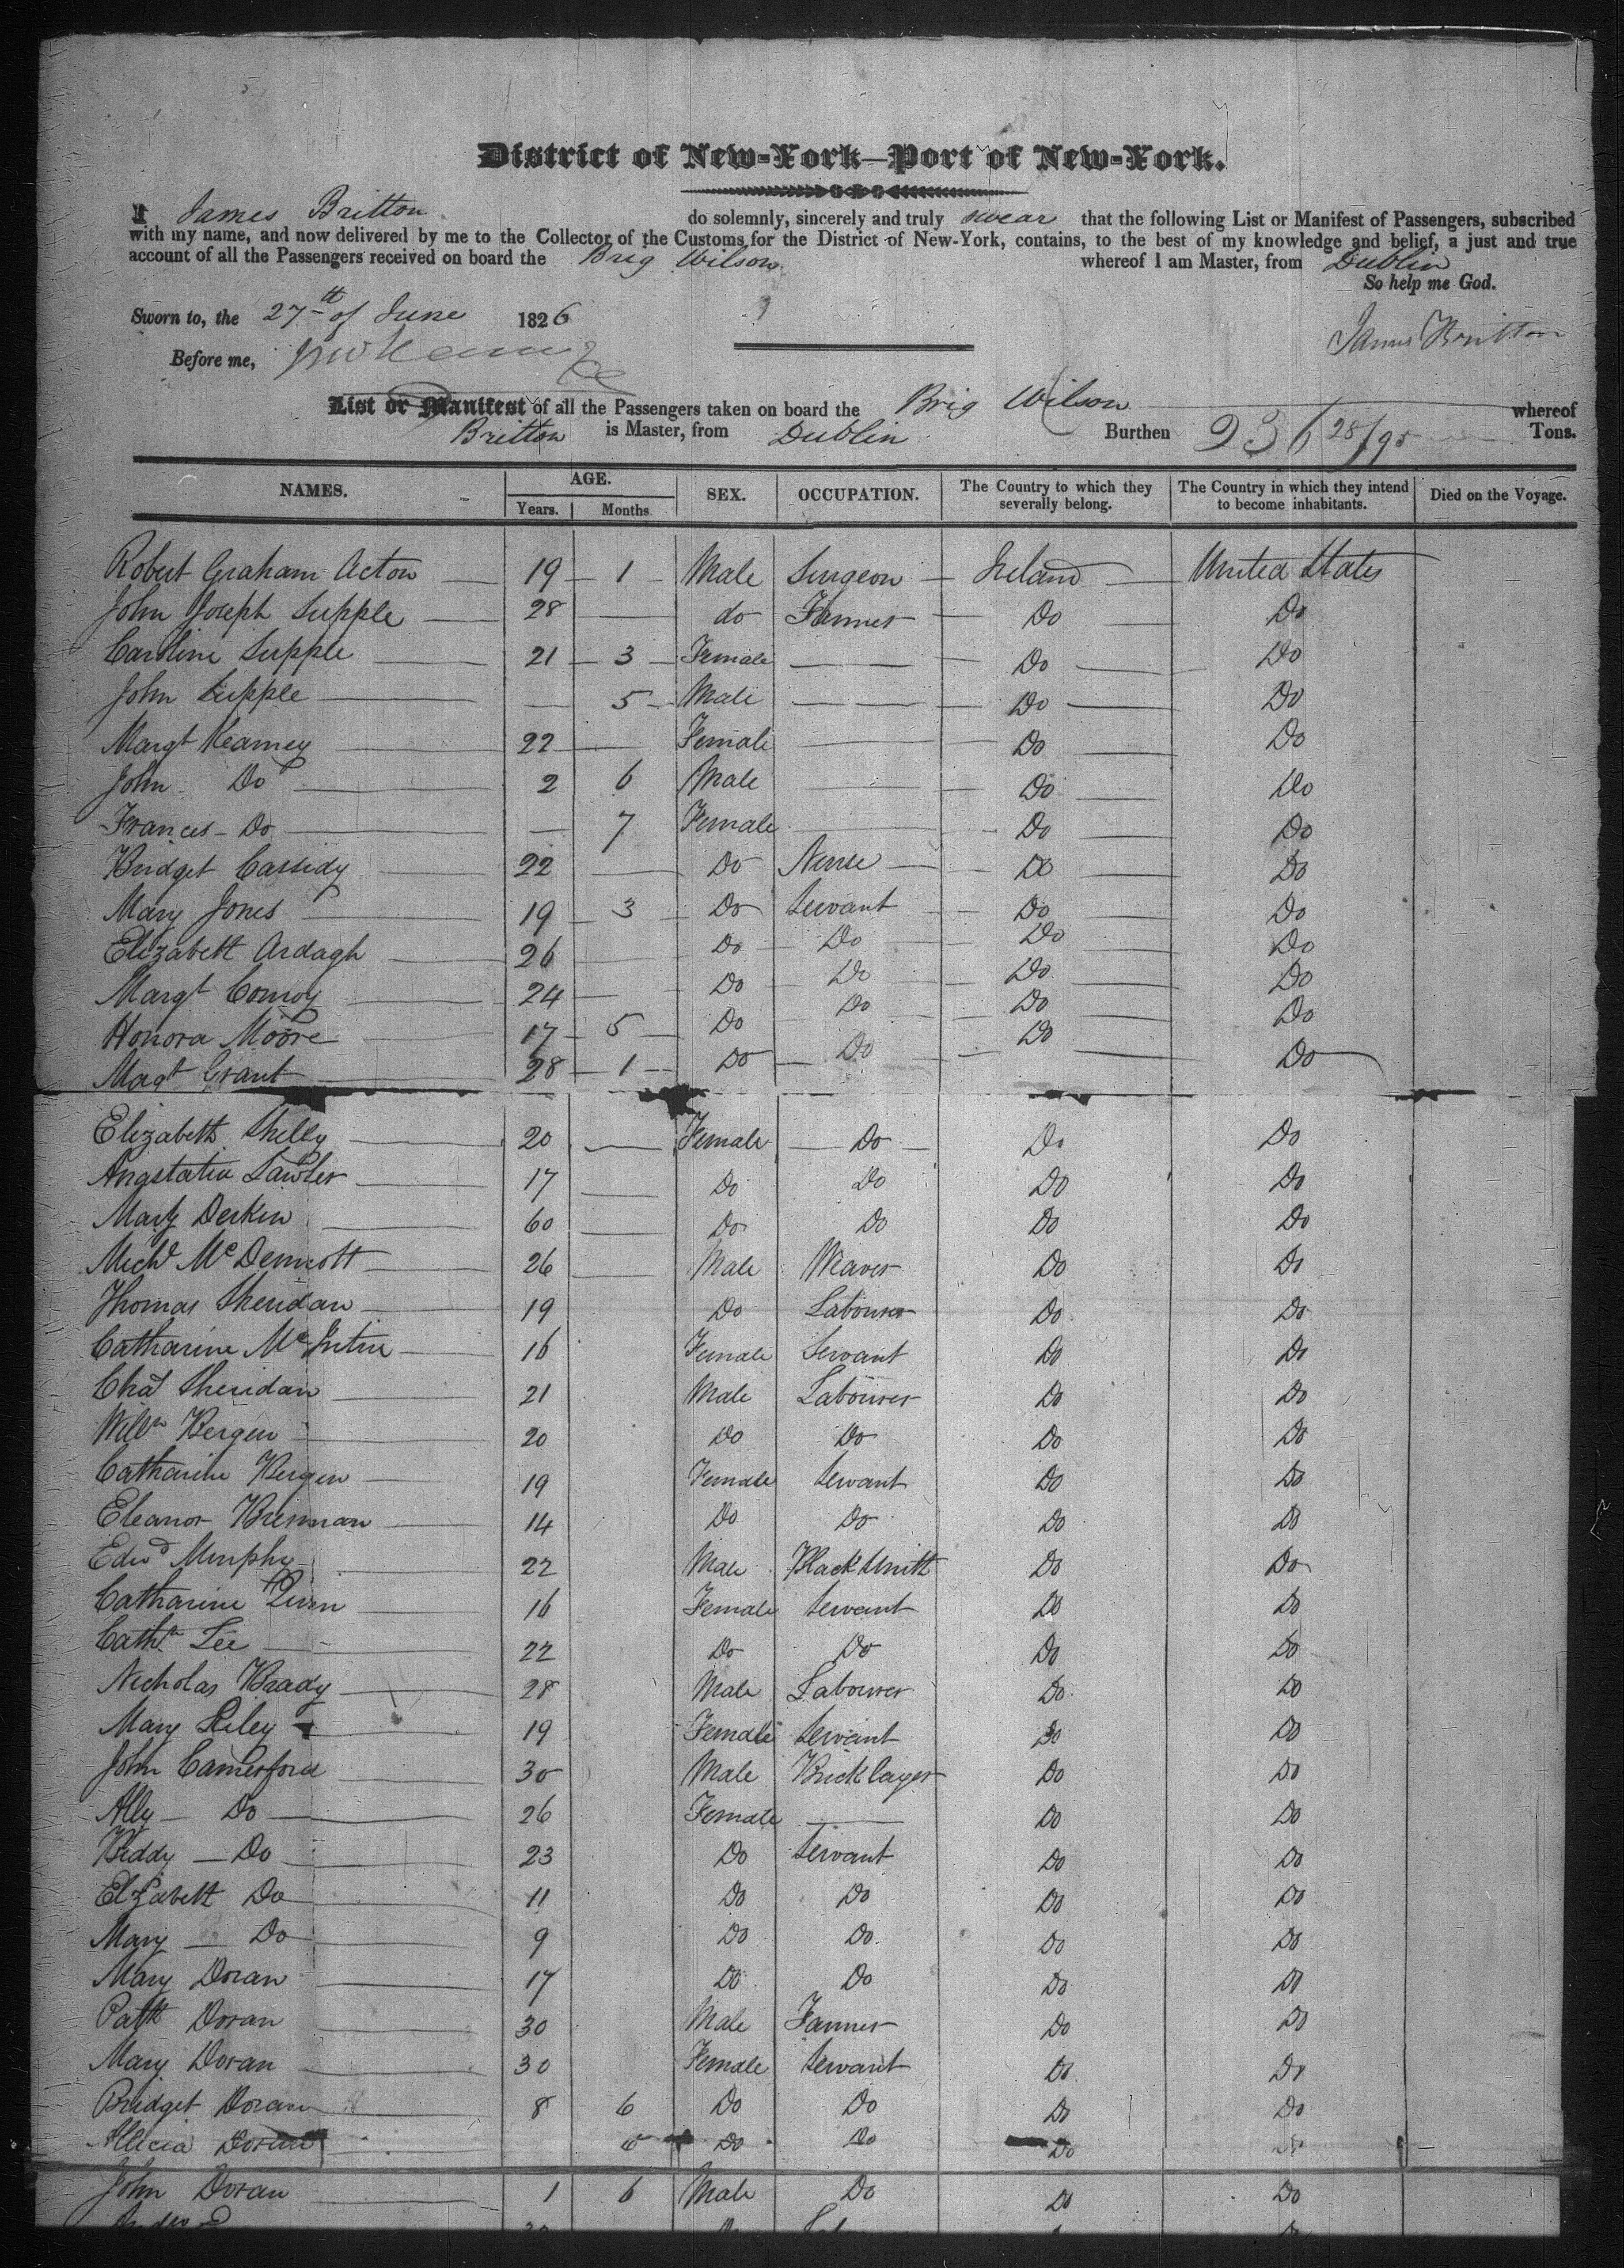 District of New-York—Port of New-York.
I James Britton do solemnly, sincerely and truly swear that the following List or Manifest of Passengers, subscribed
with my name, and now delivered by me to the Collector of the Customs for the District of New-York, contains, to the best of my knowledge and belief, a just and true
account of all the Passengers received on board the Brig Wilson whereof I am Master, from Dublin
So help me God.
Sworn to, the 27th of June 1826
James Britton
Before me,
List or Manifest of all the Passengers taken on board the Brig Wilson whereof
Britton is Master, from Dublin Burthen 236 28/95 Tons.
NAMES. AGE. SEX. OCCUPATION. The Country to which they severally belong. The Country in which they intend to become inhabitants. Died on the Voyage.
Years. Months
Robert Graham Acton 19 1 Male Surgeon Ireland United States
John Joseph Supple 28 do Farmer Do Do
Caroline Supple 21 3 Female Do Do
John Supple 5 Male Do Do
Margt Kearney 22 Female Do Do
John Do 2 6 Male Do Do
Frances Do 7 Female Do Do
Bridget Cassidy 22 Do Nurse Do Do
Mary Jones 19 3 Do Servant Do Do
Elizabeth Ardagh 26 Do Do Do Do
Margt Conroy 24 Do Do Do Do
Honora Moore 17 5 Do Do Do Do
Magt Grant 28 1 Do Do Do Do
Elizabeth Shelly 20 Female Do Do Do
Anastatia Lawler 17 Do Do Do Do
Mary Derkin 60 Do Do Do Do
Michl McDermott 26 Male Weaver Do Do
Thomas Sheridan 19 Do Labourer Do Do
Catharine McIntire 16 Female Servant Do Do
Chas Sheridan 21 Male Labourer Do Do
Willm Bergen 20 Do Do Do Do
Catharine Bergen 19 Female Servant Do Do
Eleanor Brennan 14 Do Do Do Do
Edwd Murphy 22 Male Blacksmith Do Do
Catharine Quinn 16 Female Servant Do Do
Cathn Lee 22 Do Do Do Do
Nicholas Brady 28 Male Labourer Do Do
Mary Riley 19 Female Servant Do Do
John Comerford 30 Male Bricklayer Do Do
Ally Do 26 Female Do Do
Biddy Do 23 Do Servant Do Do
Elizabeth Do 11 Do Do Do Do
Mary Do 9 Do Do Do Do
Mary Doran 17 Do Do Do Do
Patk Doran 30 Male Farmer Do Do
Mary Doran 30 Female Servant Do Do
Bridget Doran 8 6 Do Do Do Do
Allicia Doran Do Do Do
John Doran 1 6 Male Do Do Do